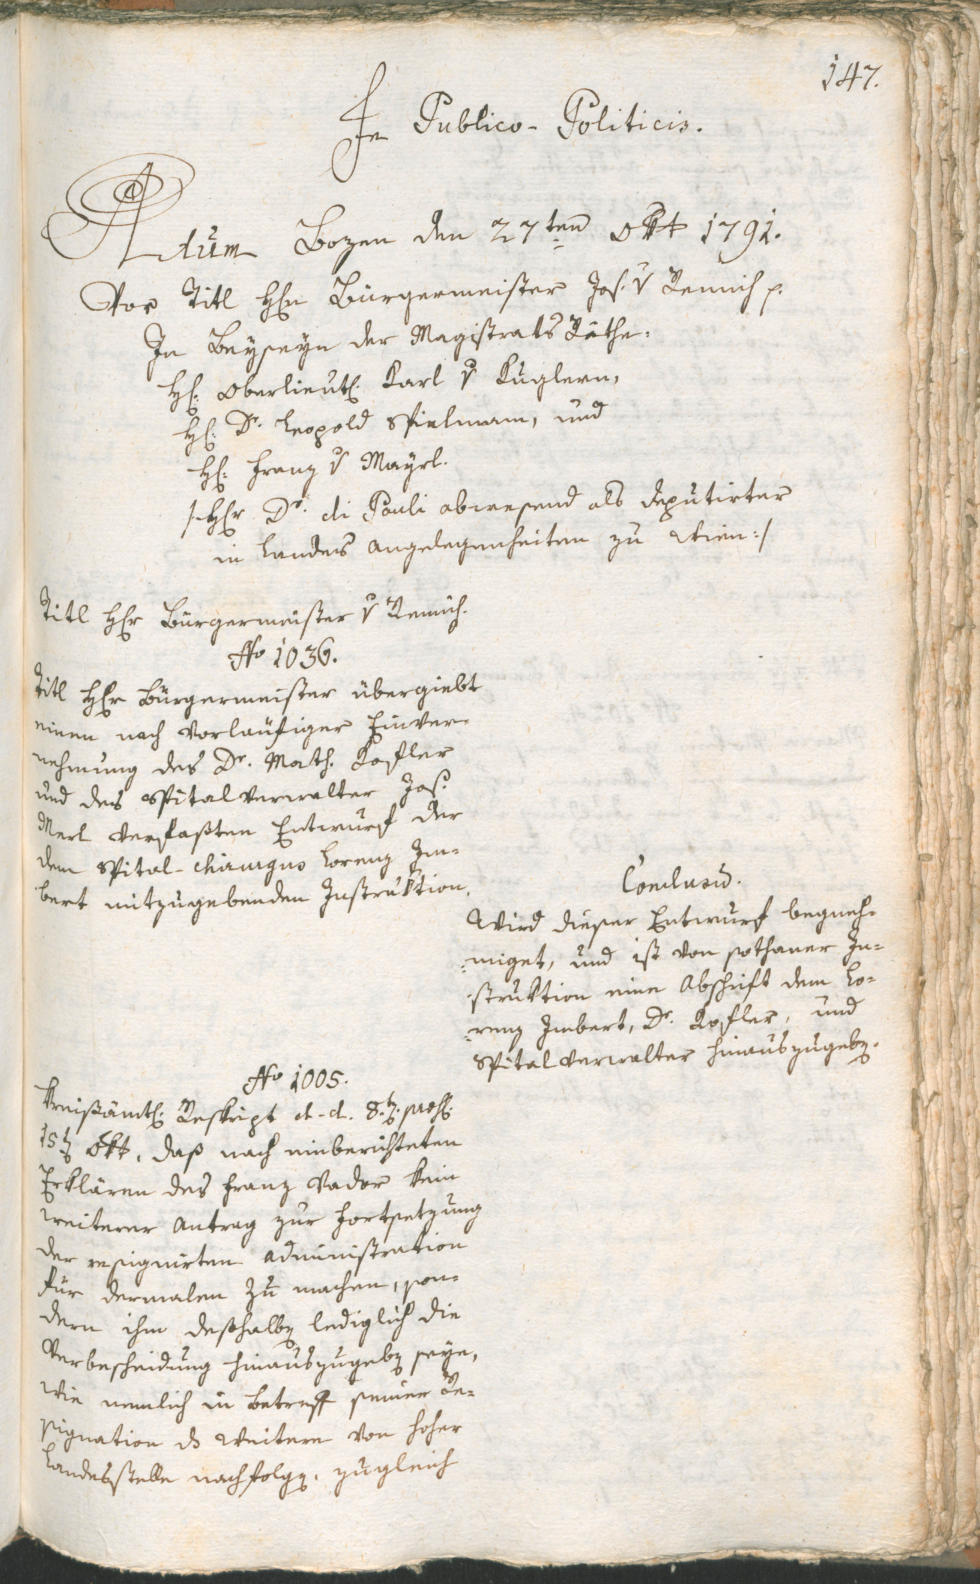 147.
In Publico-Politicis.
Actum Bozen den 27ten Okt 1791.
Vor Titl Hln Bürgermeister Jos. v Remich p.
In Beyseyn der Magistrats Räthe.
Hl. Oberlieutl. Karl v Kuglern,
Hl. Dr. Leopold Spielmann, und
Hl. Franz v Mayrl.
/:Hlr Dr. di Pauli abwesend als Deputirter
in Landes Angelegenheiten zu Wien:/
Titl Hlr Bürgermeister v Remich.
No 1036.
Titl Hlr Bürgermeister übergiebt
einen nach vorläufiger Einver-
nehmung des Dr. Math. Kofler
und des Spitalverwalter Jos.
Merl verfaßten Entwurf der
dem Spital-chirurgus Lorenz Im-
bert mitzugebenden Instruktion.
Conclusū.
Wird dieser Entwurf begneh-
miget, und ist von sothaner In-
struktion eine Abschrift dem Lo-
renz Imbert, Dr. Kofler, und
Spitalverwalter hinauszugebẽ.
No 1005.
Kreißämtl. Reskript d-d. 8.t. præs.
15t Okt, daß nach einberichteten
Erklären des Franz Bador kein
weiterer Antrag zur Fortsetzung
der resignirten Administration
für dermalen zu machen, son-
dern ihm deßhalb lediglich die
Verbescheidung hinauszugebẽ seye,
wie nemlich in Betreff seiner Re-
signation ds Weitere von hoher
Landesstelle nachfolge, zugleich